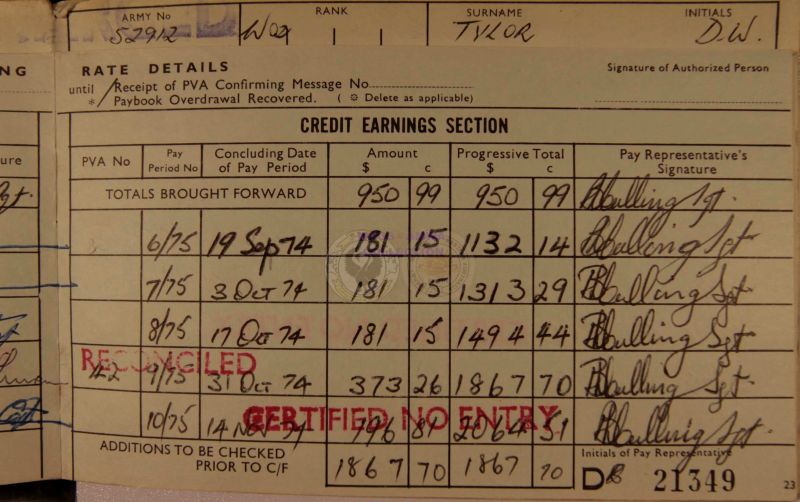 ARMY No RANK SURNAME INITIALS
52912 WO2 TYLOR D.W.
NG RATE DETAILS Signature of Authorized Person
until Receipt of PVA Confirming Message No
*/ Paybook Overdrawal Recovered. ( * Delete as applicable)
CREDIT EARNINGS SECTION
ure PVA No Pay Period No Concluding Date of Pay Period Amount $ c Progressive Total $ c Pay Representative's Signature
TOTALS BROUGHT FORWARD 950 99 950 99 Sgt.
6/75 19 Sep 74 181 15 1132 14 Sgt
7/75 3 Oct 74 181 15 1313 29 Sgt
8/75 17 Oct 74 181 15 1494 44 Sgt
RECONCILED
9/75 31 Oct 74 373 26 1867 70 Sgt
CERTIFIED NO ENTRY
10/75 14 Nov 74 2064 51 Sgt.
ADDITIONS TO BE CHECKED PRIOR TO C/F 1867 70 1867 70 Initials of Pay Representative
21349 23